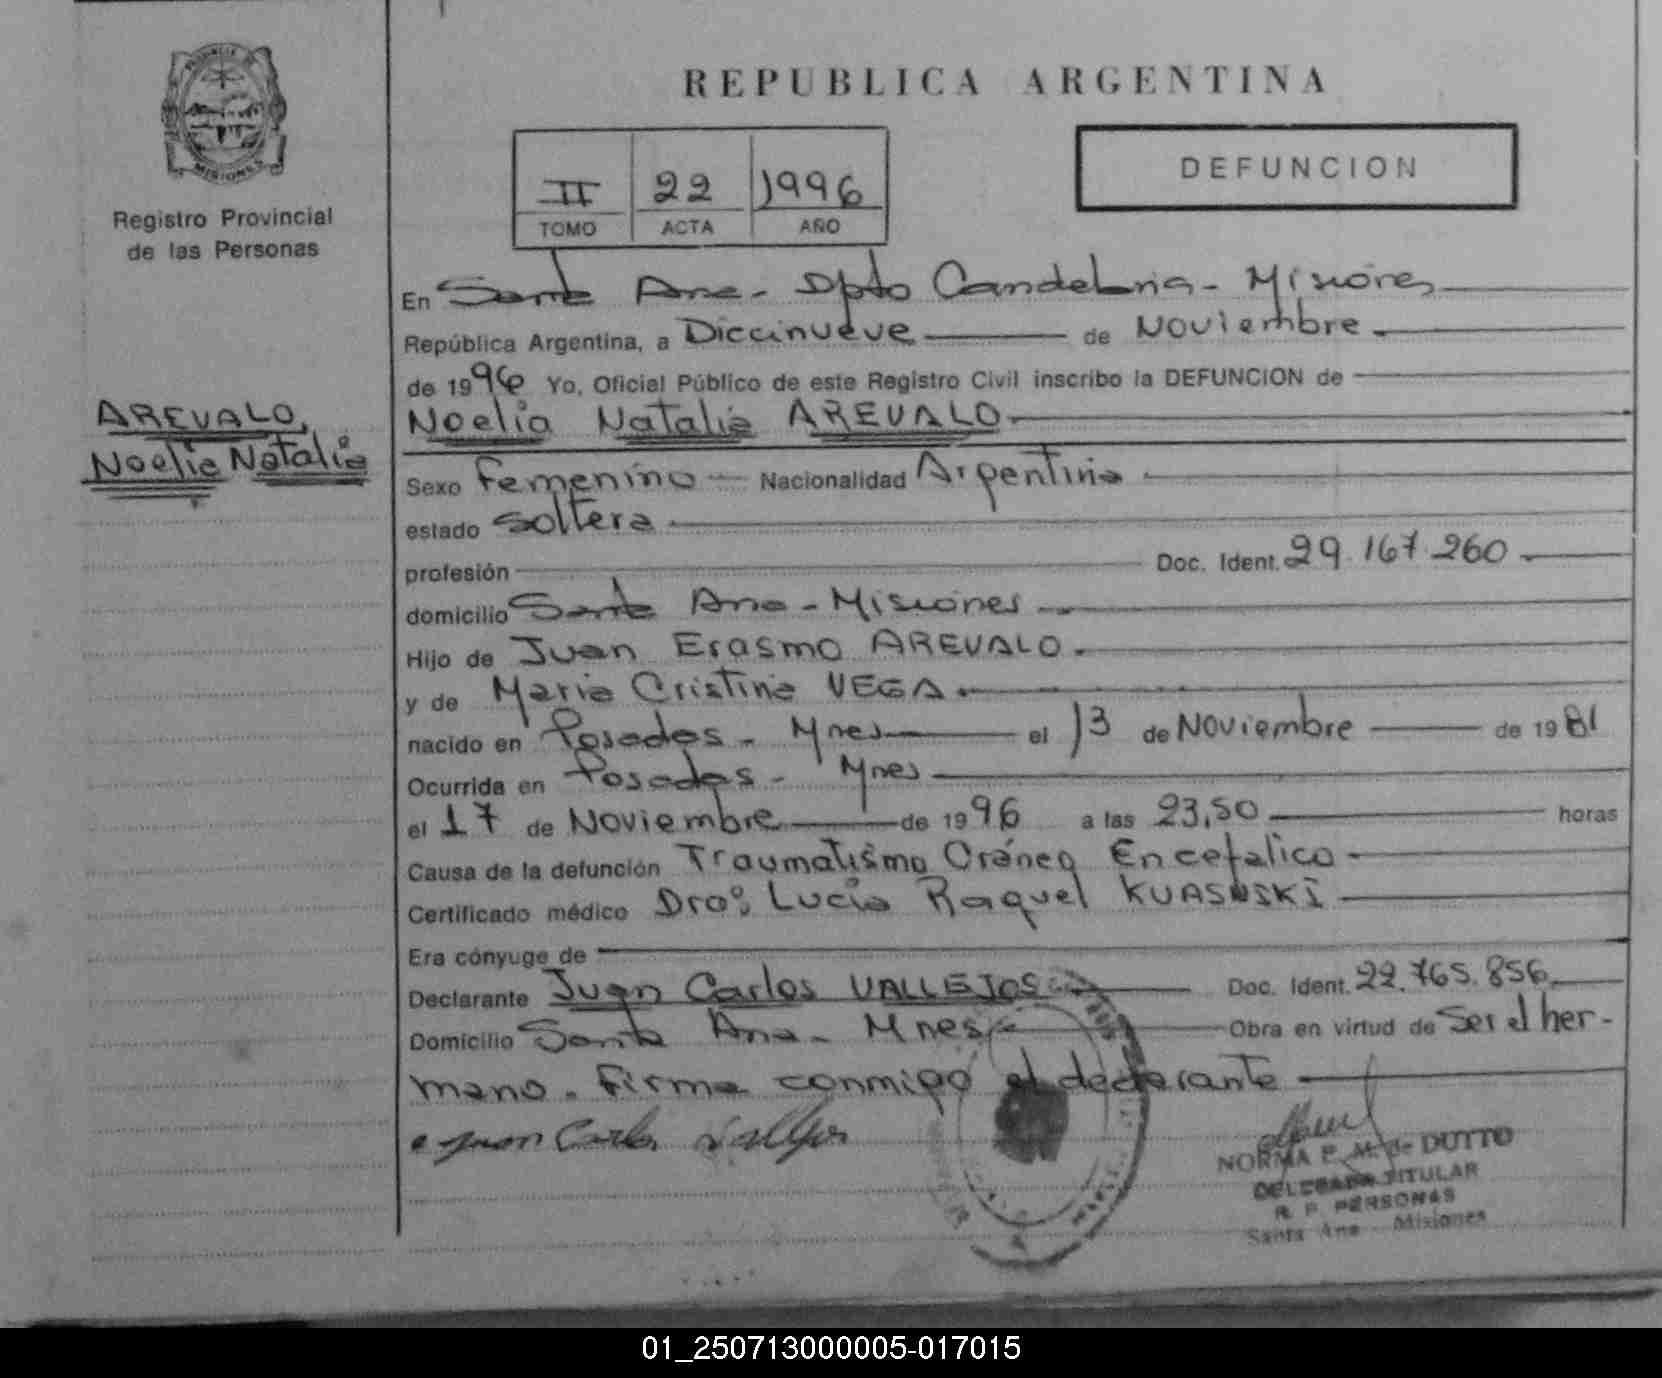 PROVINCIA DE
MISIONES
Registro Provincial
de las Personas
REPUBLICA ARGENTINA
II 22 1996
TOMO ACTA AÑO
DEFUNCION
En Santa Ana - Dpto Candelaria - Misiones
República Argentina, a Diecinueve de Noviembre
de 1996 Yo, Oficial Público de este Registro Civil inscribo la DEFUNCION de
Noelia Natalia AREVALO
AREVALO,
Noelia Natalia
Sexo Femenino Nacionalidad Argentina
estado Soltera
profesión Doc. Ident. 29.167.260
domicilio Santa Ana - Misiones
Hijo de Juan Erasmo AREVALO
y de Maria Cristina VEGA
nacido en Posadas - Mnes el 13 de Noviembre de 1981
Ocurrida en Posadas - Mnes
el 17 de Noviembre de 1996 a las 23,50 horas
Causa de la defunción Traumatismo Cráneo Encefalico
Certificado médico Dra: Lucia Raquel KUASNSKI
Era cónyuge de
Declarante Juan Carlos VALLEJOS Doc. Ident. 22.765.856
Domicilio Santa Ana - Mnes Obra en virtud de Ser el her-
mano. Firma conmigo el declarante
Juan Carlos Vallejos
NORMA P. M. de DUTTO
DELEGADA TITULAR
R. P. PERSONAS
Santa Ana - Misiones
01_250713000005-017015